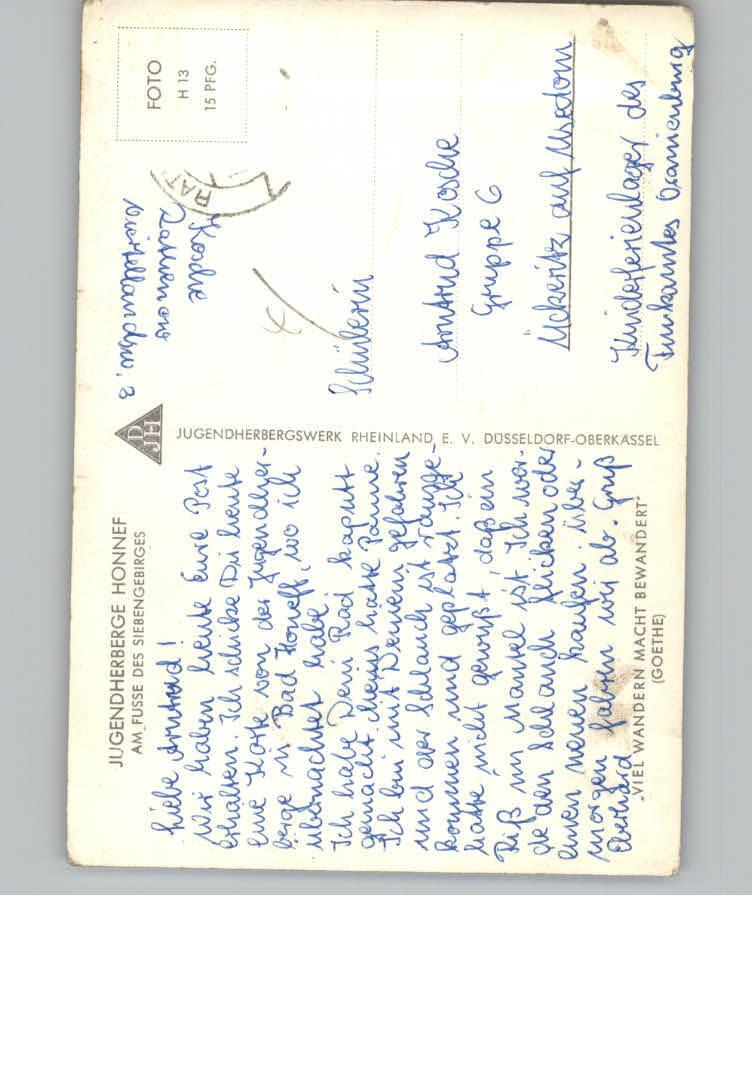 JUGENDHERBERGE HONNEF
AM FUSSE DES SIEBENGEBIRGES
Liebe Arntrud!
Wir haben heute Eure Post
erhalten. Ich schicke Dir heute
eine Karte von der Jugendher-
berge in Bad Honeff, wo ich
übernachtet habe.
Ich habe Dein Rad kaputt
gemacht. hatte Panne.
Ich bin mit Deinem gefahren
und der Schlauch ist rausge-
kommen und geplatzt. Ich
hatte nicht gewußt, daß ein
Riß im Mantel ist. Ich wer-
de den Schlauch flicken oder
einen neuen kaufen. Über-
morgen fahren wir ab. Gruß
Eberhard
„VIEL WANDERN MACHT BEWANDERT"
(GOETHE)
DJH
JUGENDHERBERGSWERK RHEINLAND E. V. DÜSSELDORF-OBERKASSEL
Kosche
Rathenow
3
RAT
FOTO
H 13
15 PFG.
Schülerin
Arntrud Kosche
Gruppe 6
Ückeritz auf Usedom
Kinderferienlager des
Funkamtes Oranienburg